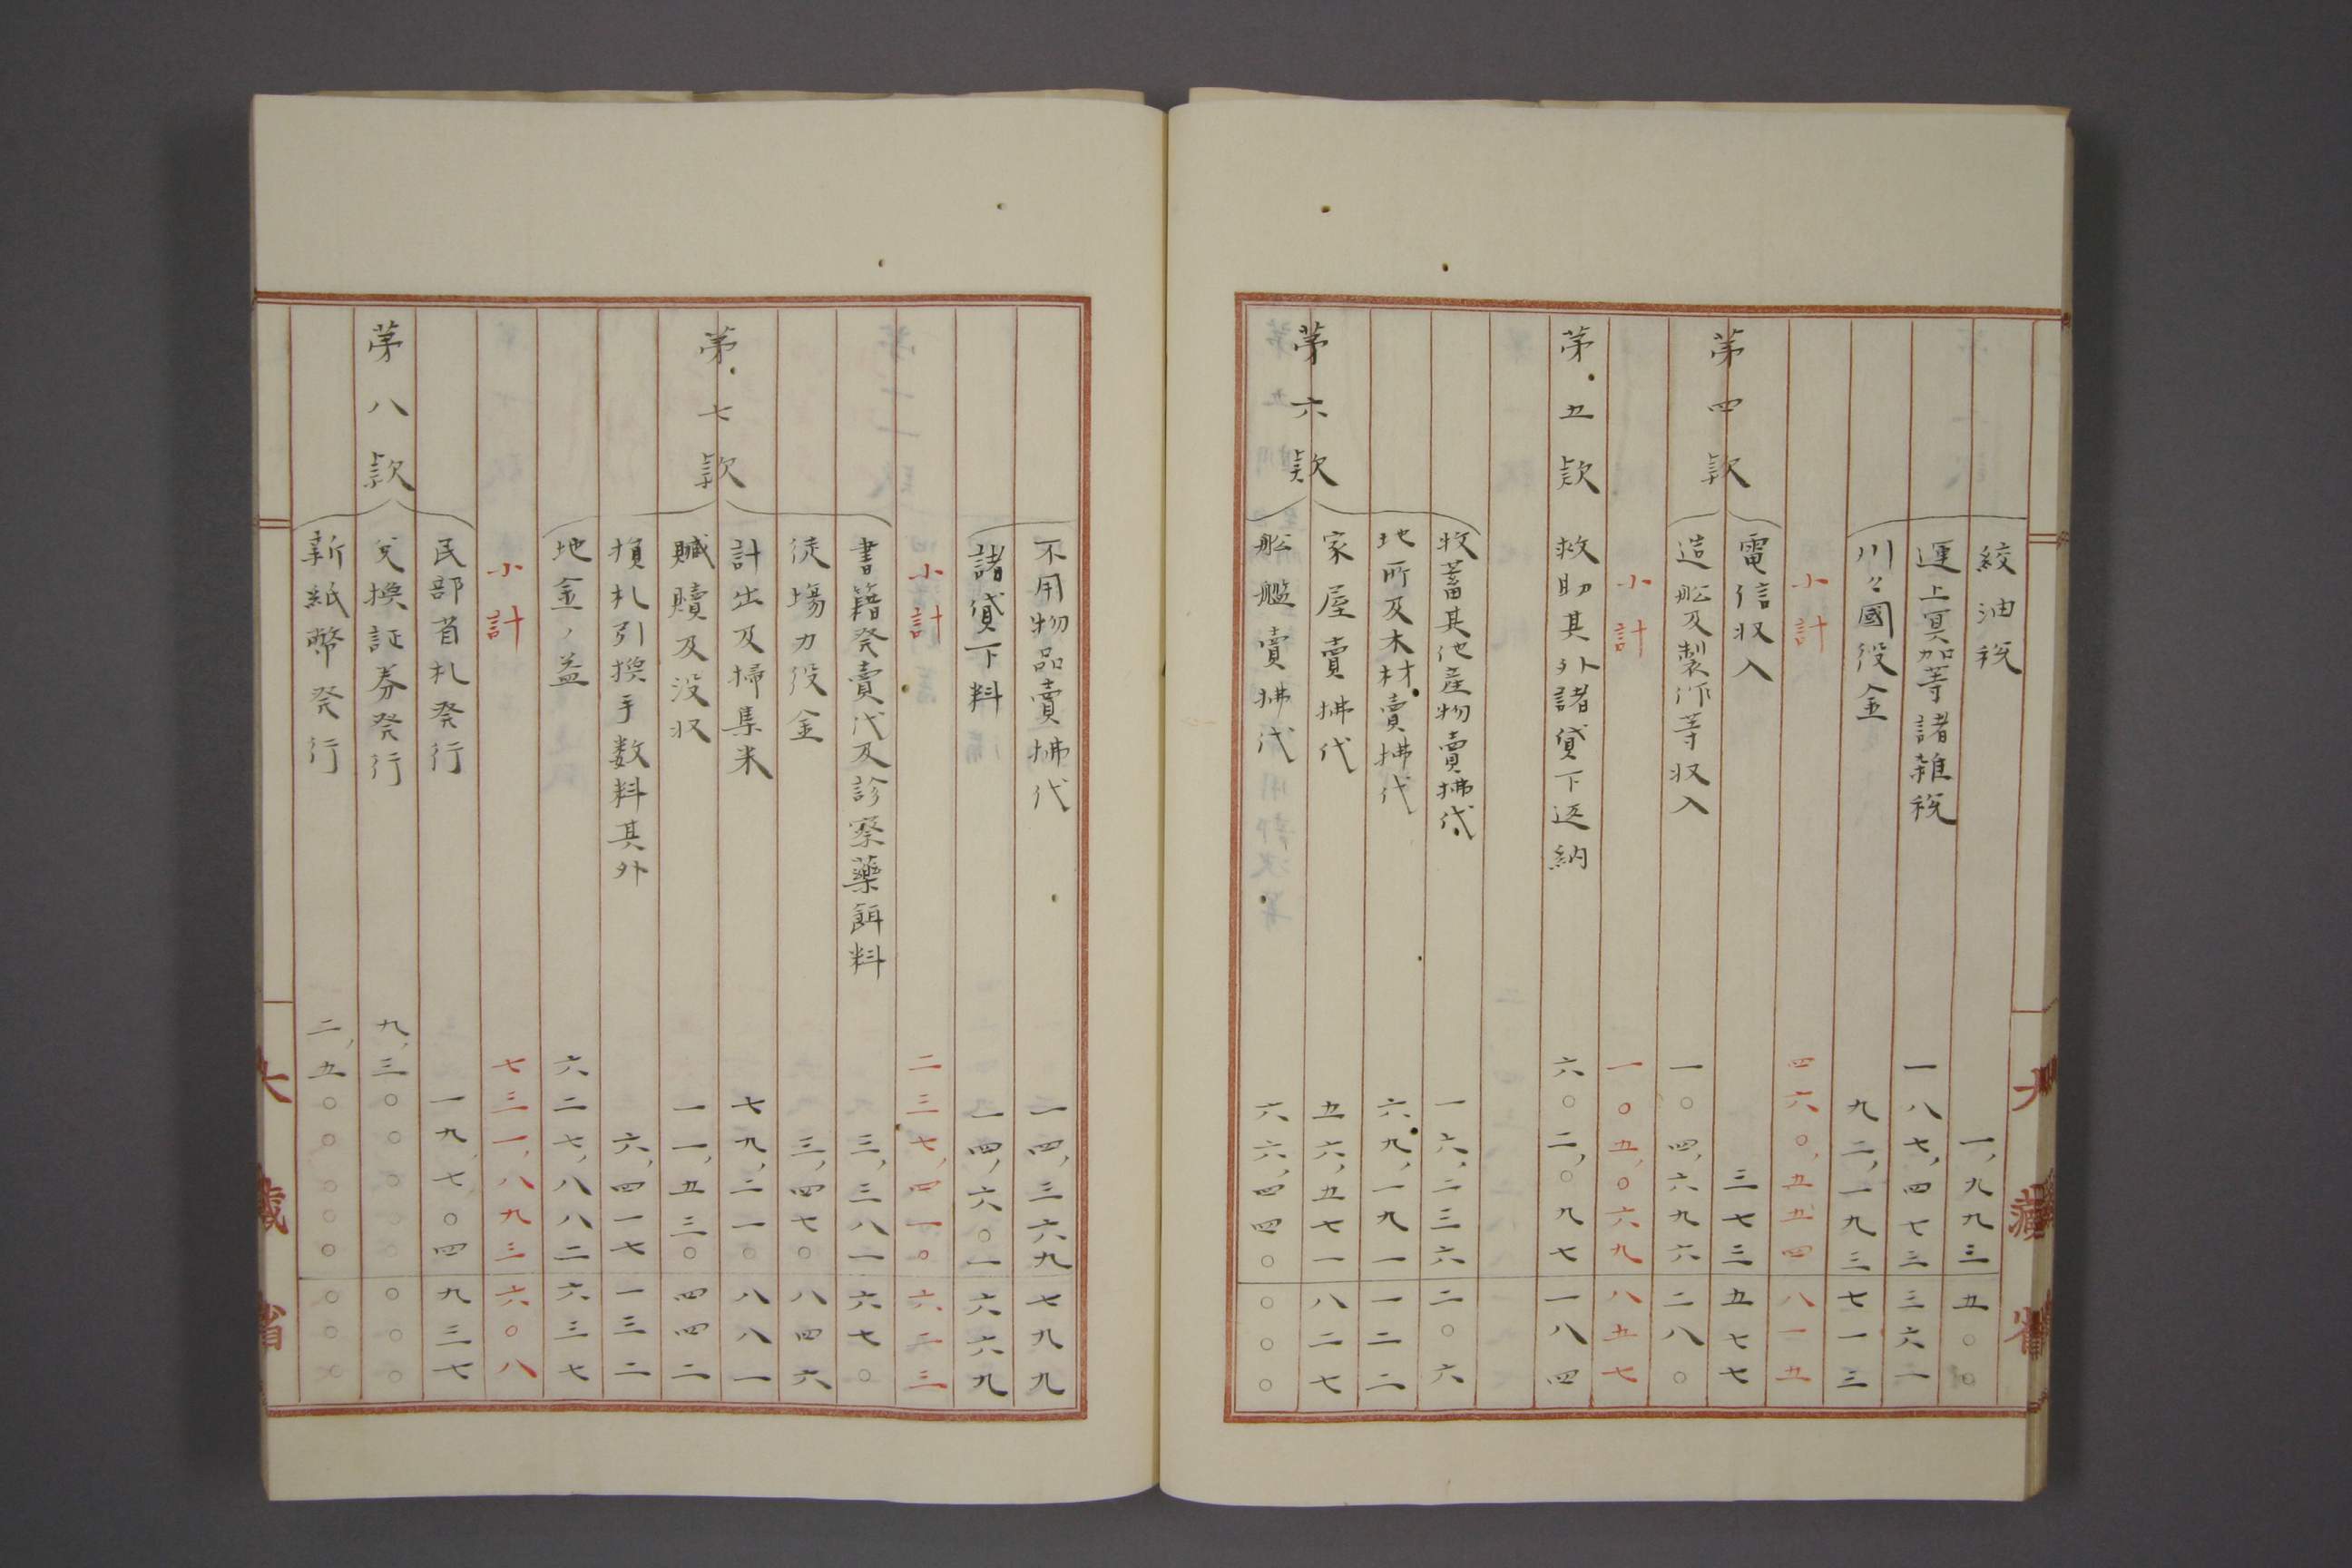 大藏省
絞油税 一,九九三 五〇〇
運上冥加等諸雑税 一八七,四七三 三六一
川々國役金 九二,一九三 七一三
小計 四六〇,五五四 八一五
第四款
電信収入 三七三 五七七
造船及製作等収入 一〇四,六九六 二八〇
小計 一〇五,〇六九 八五七
第五款 救助其外諸貸下返納 六〇二,〇九七 一八四
第六款
牧蓄其他産物賣拂代 一六,二三六 二〇六
地所及木材賣拂代 六九,一九一 一二二
家屋賣拂代 五六,五七一 八二七
船艦賣拂代 六六,四四〇 〇〇〇
不用物品賣拂代 一四,三六九 七九九
諸貸下料 一四,六〇一 六六九
小計 二三七,四一〇 六二三
第七款
書籍発賣代及診察藥餌料 三,三八一 六七〇
徒場力役金 三,四七〇 八四六
計出及掃集米 七九,二一〇 八八一
贓贖及没収 一一,五三〇 四四二
損札引換手数料其外 六,四一七 一三二
地金ノ益 六二七,八八二 六三七
小計 七三一,八九三 六〇八
第八款
民部省札発行 一九,七〇四 九三七
兌換証券発行 九,三〇〇〇〇〇 〇〇〇
新紙幣発行 二,五〇〇〇〇〇 〇〇〇
大藏省